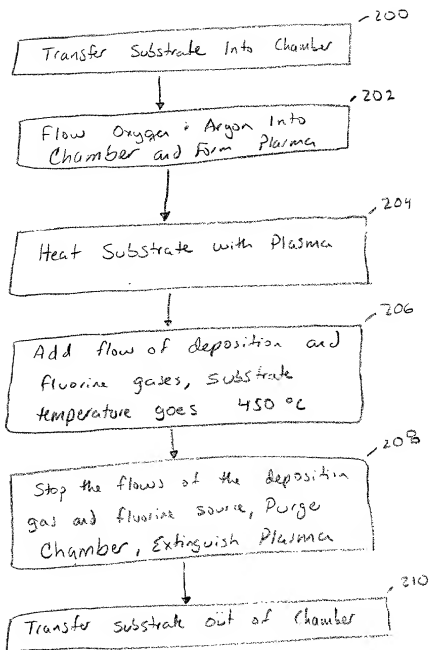 200
Transfer Substrate Into Chamber
202
Flow Oxygen & Argon Into
Chamber and Form Plasma
204
Heat Substrate with Plasma
206
Add flow of deposition and
fluorine gases, substrate
temperature goes 450 °C
208
Stop the flows of the deposition
gas and fluorine source, Purge
Chamber, Extinguish Plasma
210
Transfer substrate out of Chamber